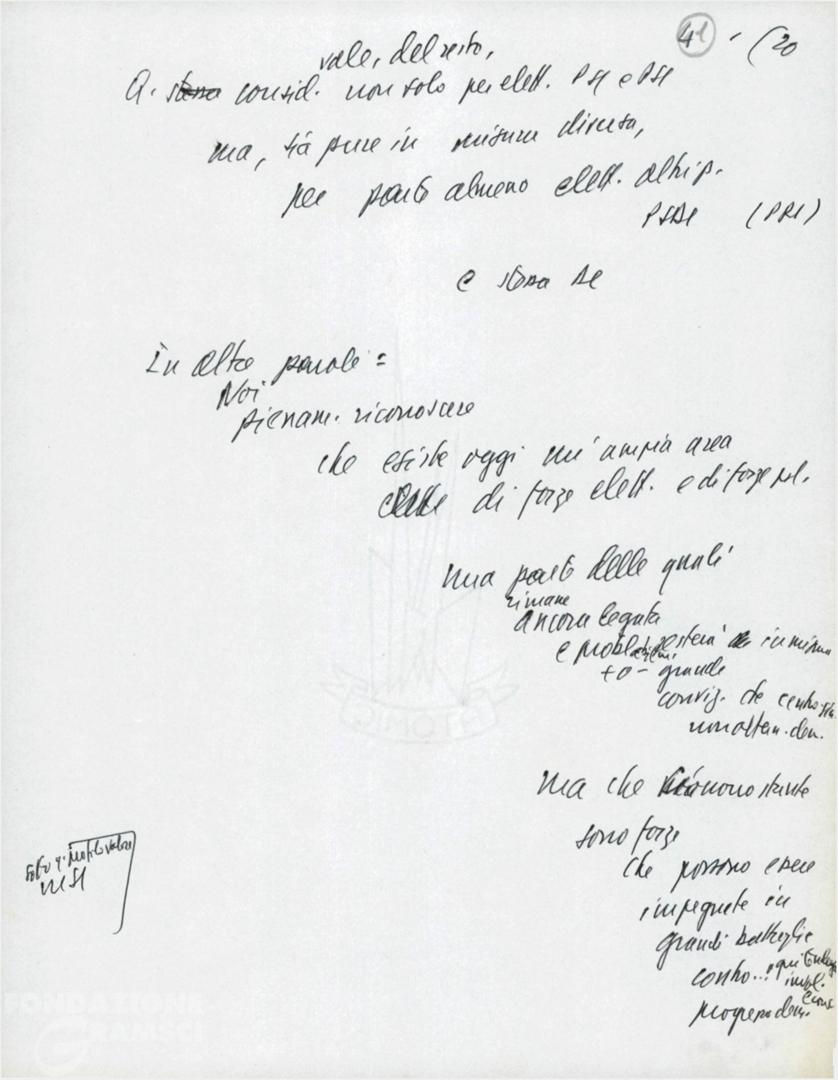 41 - (20
vale, del resto,
Q. stessa consid. non solo per elett. PSI e PSI
ma, sia pure in misura diversa,
per parte almeno elett. altri p.
PSDI (PRI)
e stessa DC
In altre parole =
Noi
pienam. riconoscere
che esiste oggi un'ampia area
di forze elett. e di forze pol.
una parte delle quali
rimane
ancora legata
e probabilm. resterà in misura
+ o - grande
conviz. che centro-sin.
non altern. dem.
ma che nonostante
sono forze
che possono essere
impegnate in
grandi battaglie
contro...
progresso dem.
sotto q. profilo
MSI
FONDAZIONE
GRAMSCI
ATOMIC